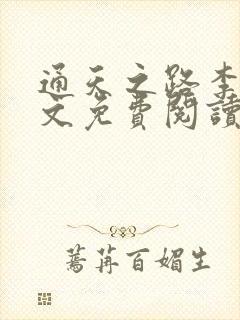 通天之路李
文免費閱讀
蓦苒百媚生